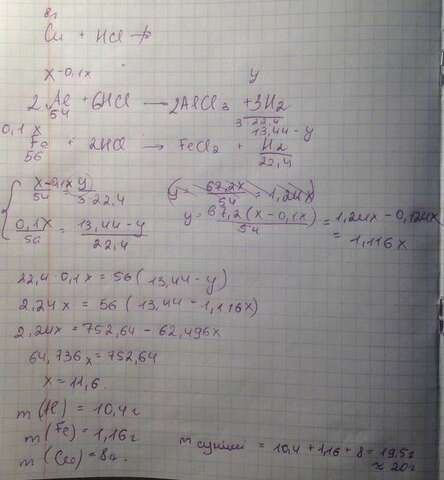 8г
Cu + HCl ↛
x-0,1x y
2Al + 6HCl → 2AlCl3 + 3H2
54 3·22,4
0,1x 13,44-y
Fe + 2HCl → FeCl2 + H2
56 22,4
{ x-0,1x / 54 = y / 3·22,4
y = 67,2x / 54 = 1,24x
0,1x / 56 = 13,44-y / 22,4
y = 67,2(x-0,1x) / 54 = 1,24x-0,124x
= 1,116x
22,4·0,1x = 56(13,44-y)
2,24x = 56(13,44-1,116x)
2,24x = 752,64-62,496x
64,736x = 752,64
x = 11,6
m(Al) = 10,4г
m(Fe) = 1,16г
m(Cu) = 8г
m смеси = 10,4+1,16+8 = 19,5г
≈ 20г